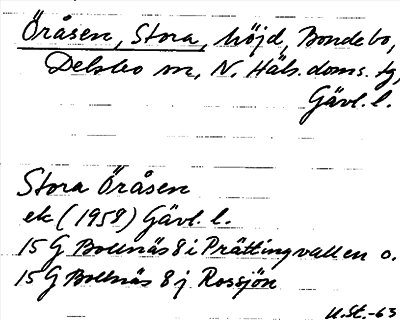 Öråsen, Stora, höjd, Bondebo,
Delsbo sn, N. Häls. doms. tg,
Gävl. l.
Stora Öråsen
ek (1958) Gävl. l.
15 G Bollnäs 8 i Prättingvallen o.
15 G Bollnäs 8 j Rossjön
U.St.-63